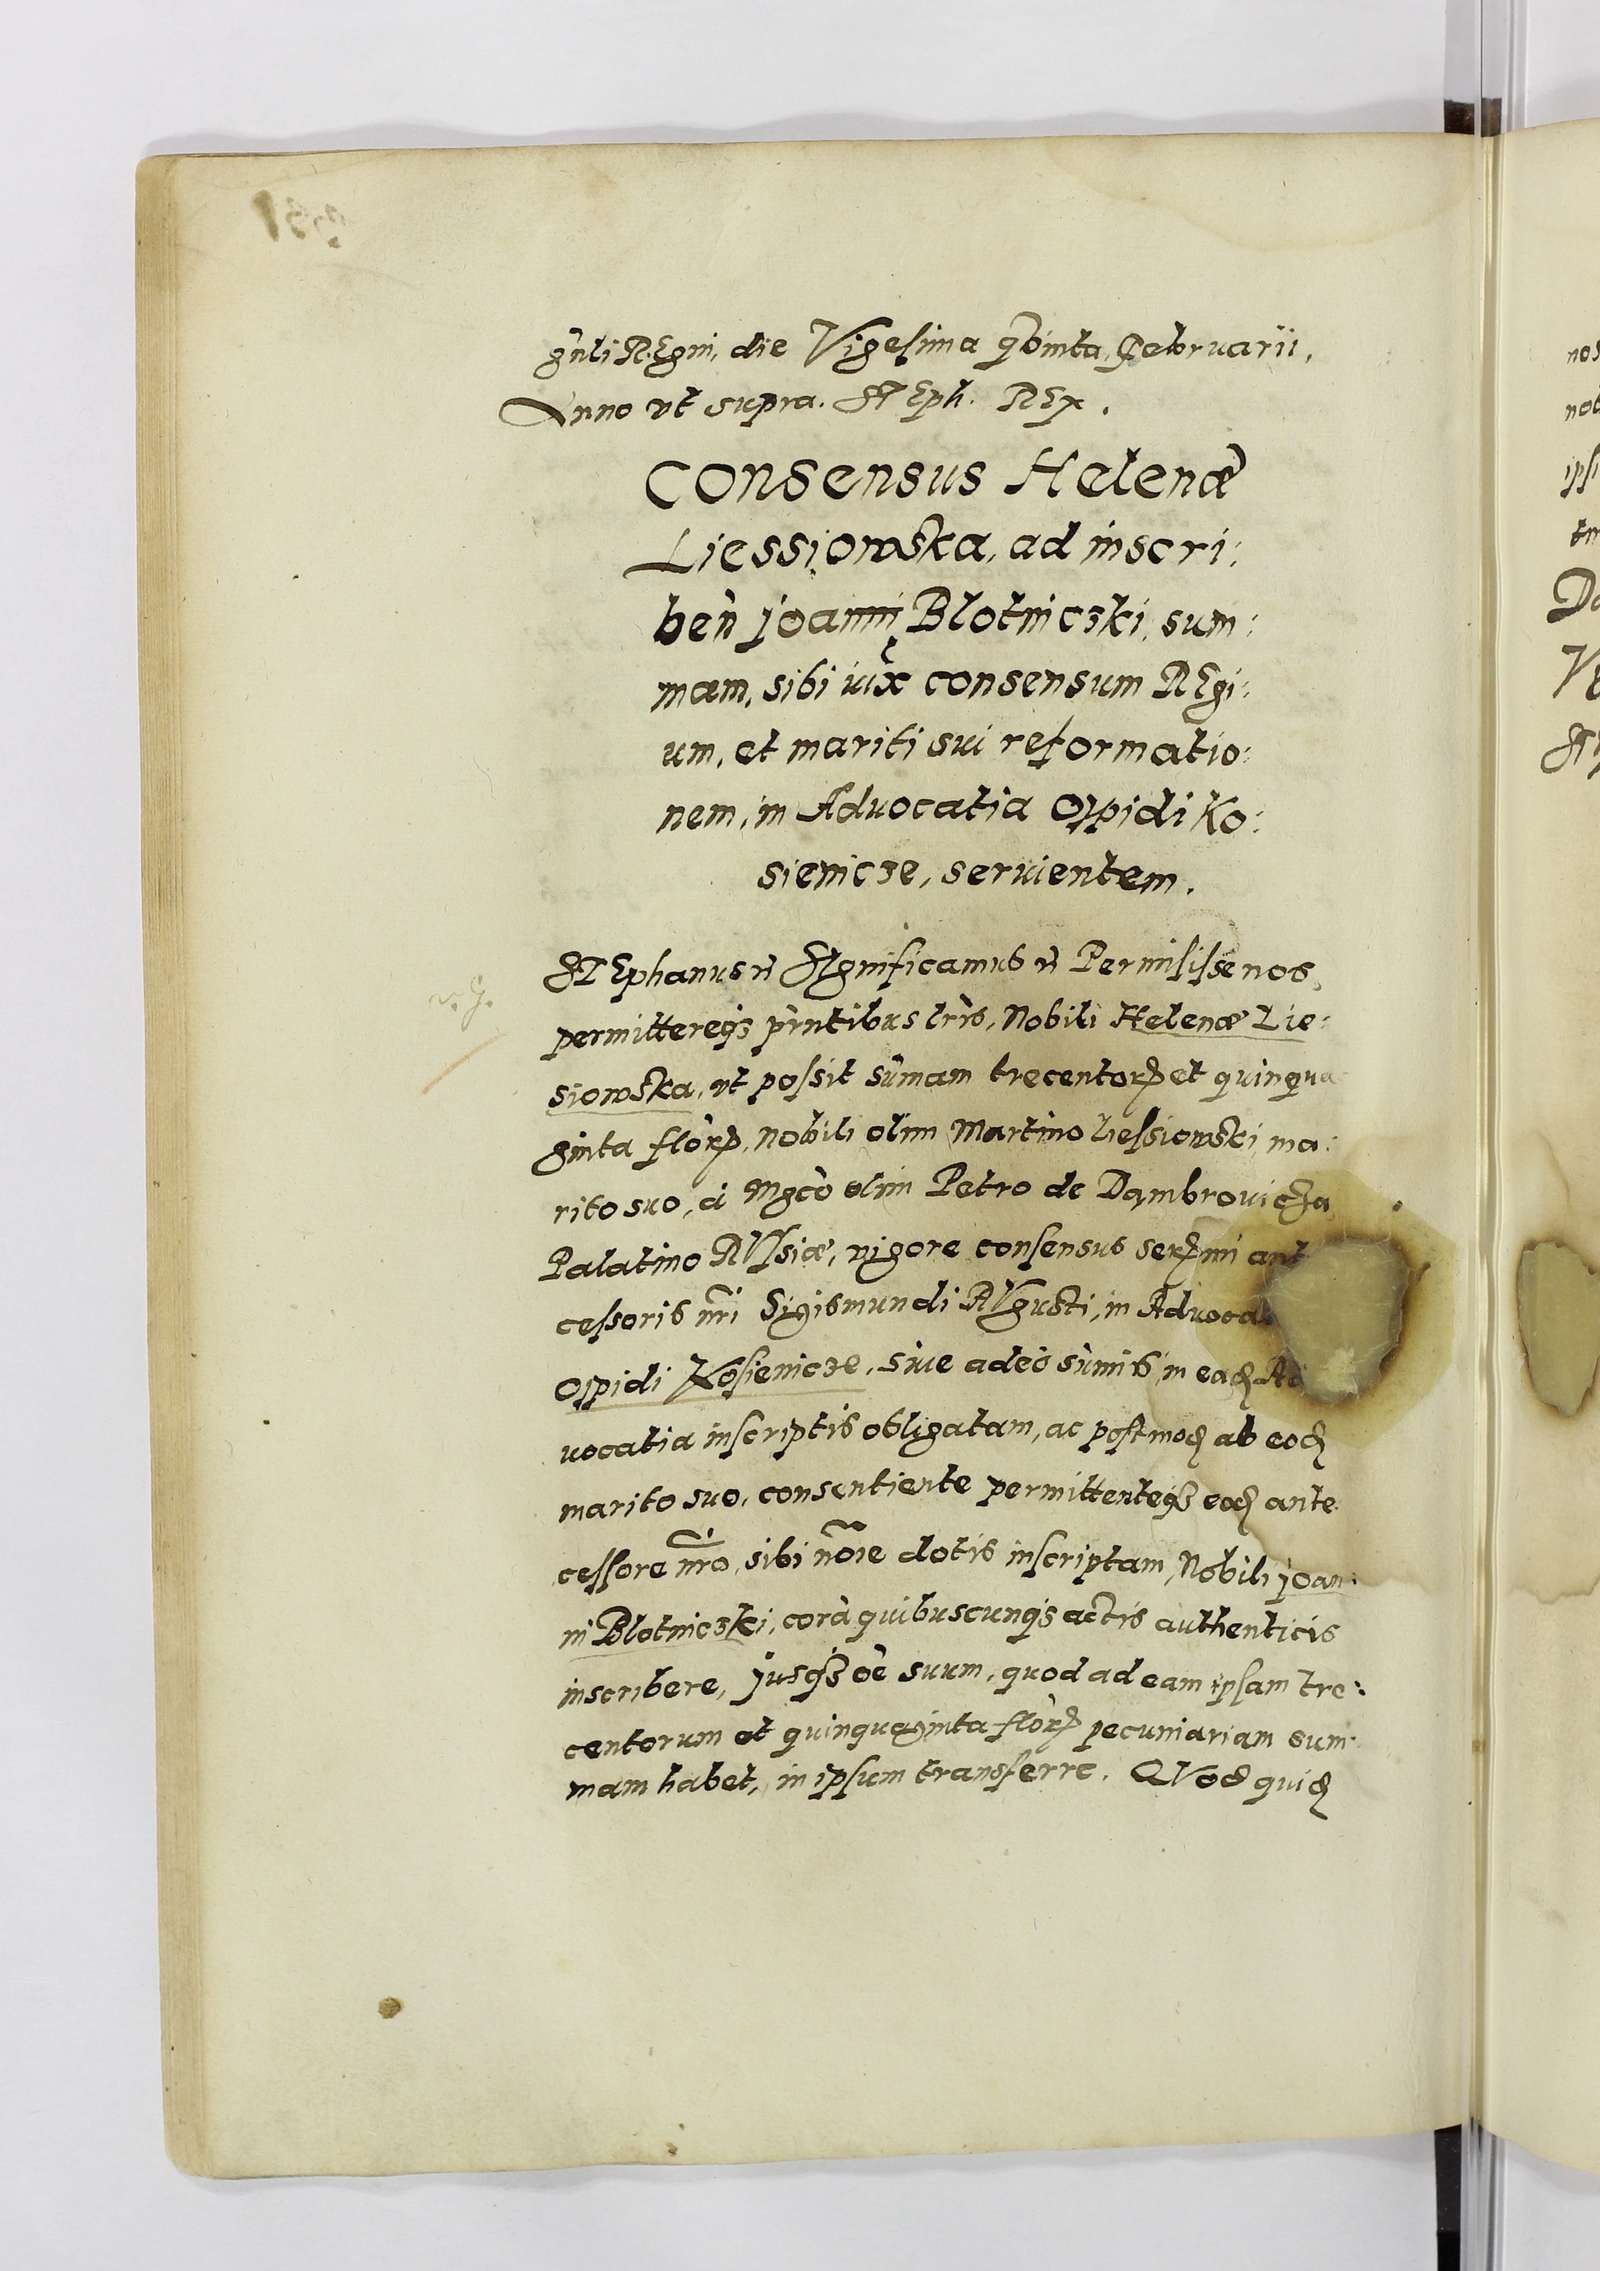 gnli REgni, die Vigesima quinta, Februarii,
Anno ut supra. STEph. REx.
Consensus Helenæ
Liessiowska, ad inscri:
ben Joanni Blotniczki, sum:
mam, sibi iux consensum REgi:
um, et mariti sui reformatio:
nem, in Aduocatia Oppidi Ko:
sienicze, seruientem.
STEphanus Significamus Permisisse nos,
permittereq3 pñtibus lris, Nobili Helenæ Lie:
siowska, ut possit sumam trecentor et quinqua
ginta flor, Nobili olim Martino Liessiowski, ma:
rito suo, à Mgco olim Petro de Dambrouicza
Palatino RVssiæ, vigore consensus ser mi ant
cessoris nri Sigismundi AVgusti, in Aduocat
Oppidi Kosienicze, siue adeò sumis in ead Ad
uocatia inscriptis obligatam, ac postmod ab eod
marito suo, consentiente permittenteq3 eod ante
cessore nro, sibi noie dotis inscriptam, Nobili Joan:
ni Blotniczki, corà quibuscunq3 actis authenticis
inscribere, jusq3 oe suum, quod ad eam ipsam tre:
centorum et quinquaginta flor pecuniariam sum:
mam habet, in ipsum transferre. QVod quid
nos
not
ipsi